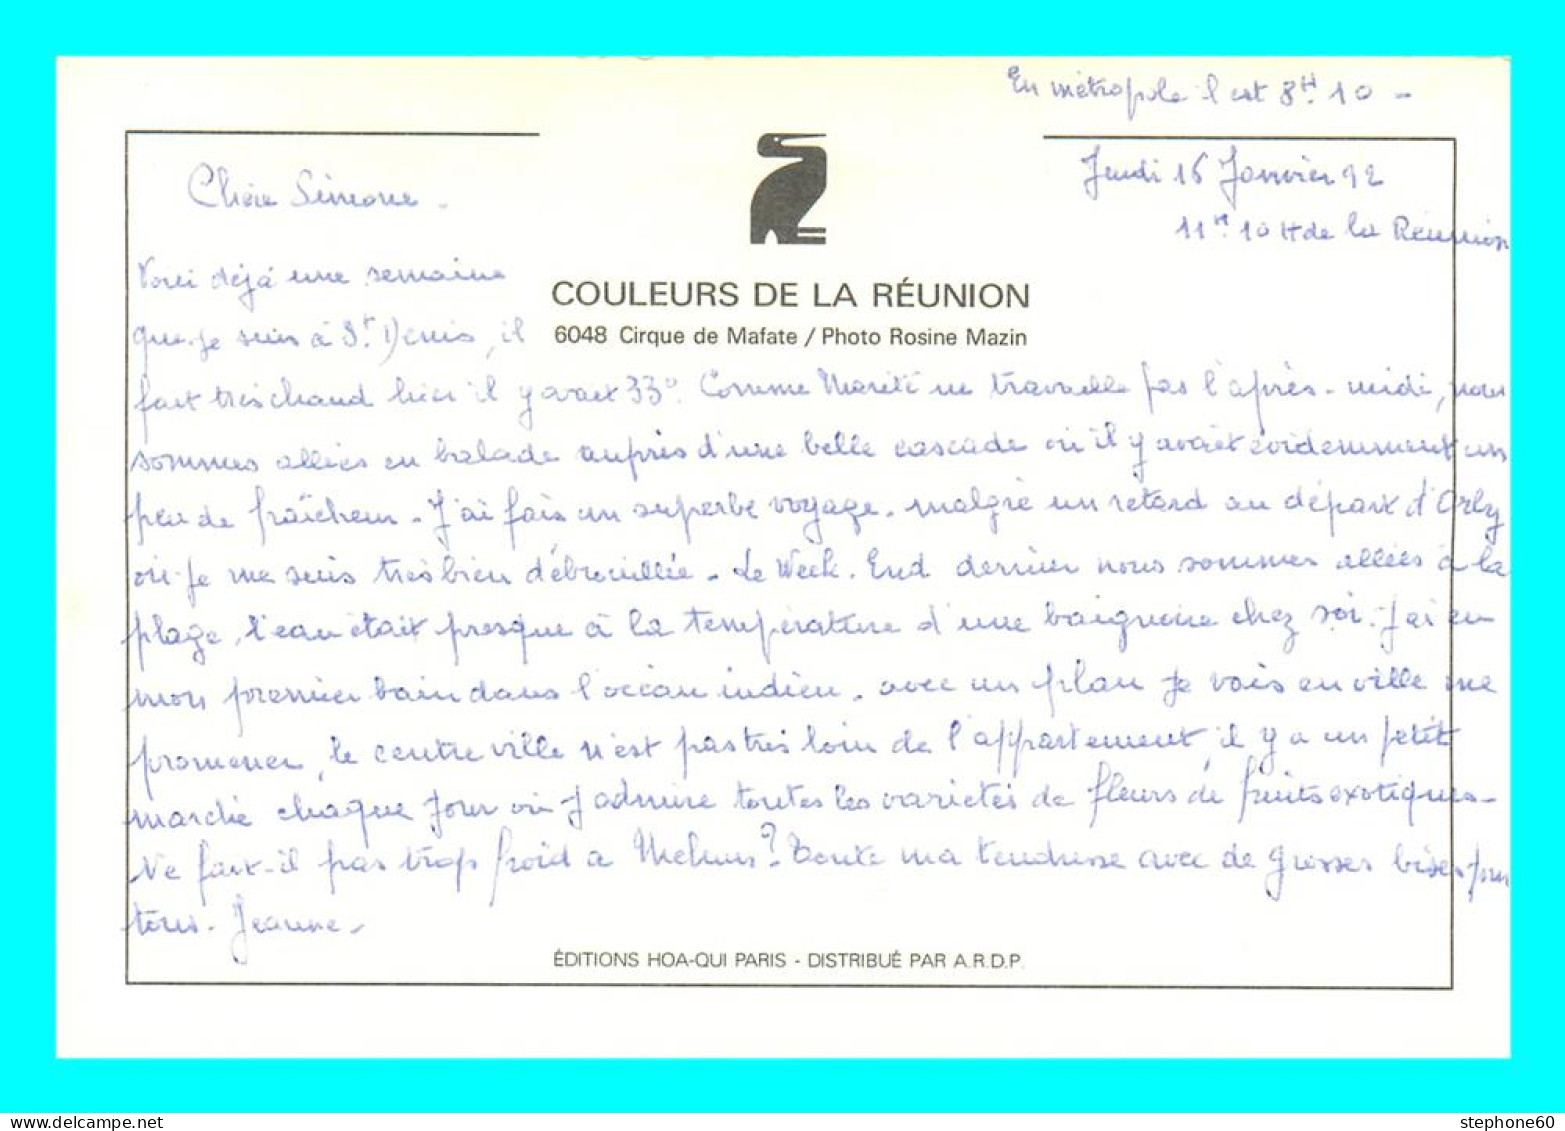 En métropole il est 8H.10 -
Jeudi 16 Janvier 92
11H 10 H de la Réunion
Chère Simone.
Voici déjà une semaine
COULEURS DE LA RÉUNION
que je suis à St Denis, il
6048 Cirque de Mafate / Photo Rosine Mazin
fait très chaud hier il y avait 33°. Comme Marité ne travaille pas l'après-midi, nous
sommes allées en balade auprès d'une belle cascade où il y avait évidemment un
peu de fraîcheur - J'ai fais un superbe voyage. malgré un retard au départ d'Orly
où je me suis très bien débrouillée - Le Week. End dernier nous sommes allées à la
plage, l'eau était presque à la température d'une baignoire chez soi. J'ai eu
mon premier bain dans l'océan indien. avec un plan je vais en ville me
promener, le centre ville n'est pas très loin de l'appartement, il y a un petit
marché chaque jour où j'admire toutes les variétés de fleurs de fruits exotiques -
Ne fait-il pas trop froid à Mehun ? Toute ma tendresse avec de grosses bises pour
tous - Jeanne -
ÉDITIONS HOA-QUI PARIS - DISTRIBUÉ PAR A.R.D.P.
stephone60